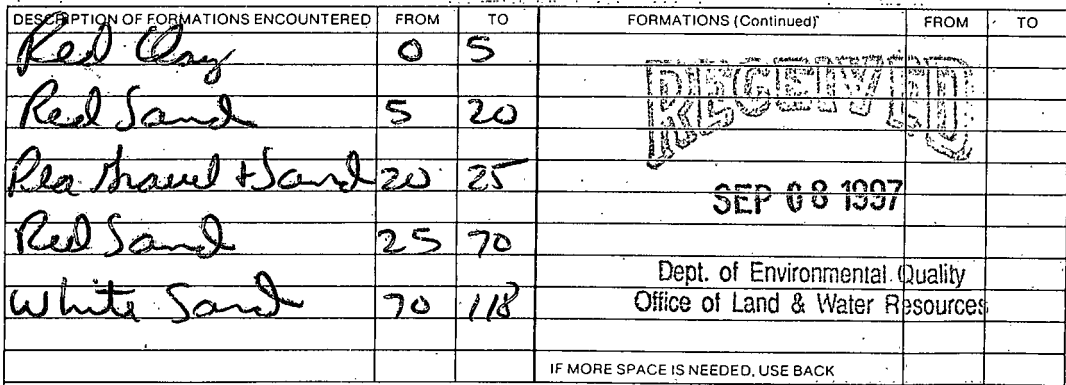 DESCRIPTION OF FORMATIONS ENCOUNTERED FROM TO FORMATIONS (Continued) FROM TO
Red Clay 0 5
RECEIVED
Red Sand 5 20
Pea Gravel + Sand 20 25
SEP 08 1997
Red Sand 25 70
Dept. of Environmental Quality
White Sand 70 118
Office of Land & Water Resources
IF MORE SPACE IS NEEDED, USE BACK